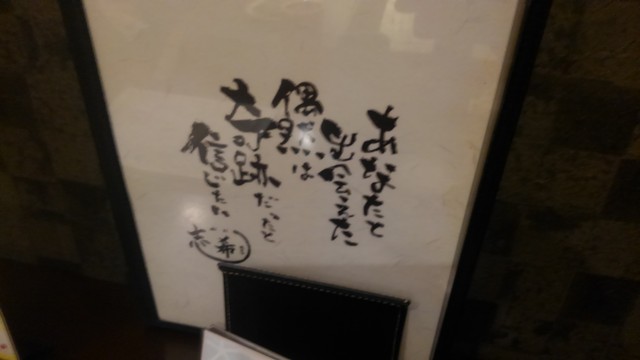 あなたと
出会えた
偶然は
大奇跡だったと
信じたい
志希